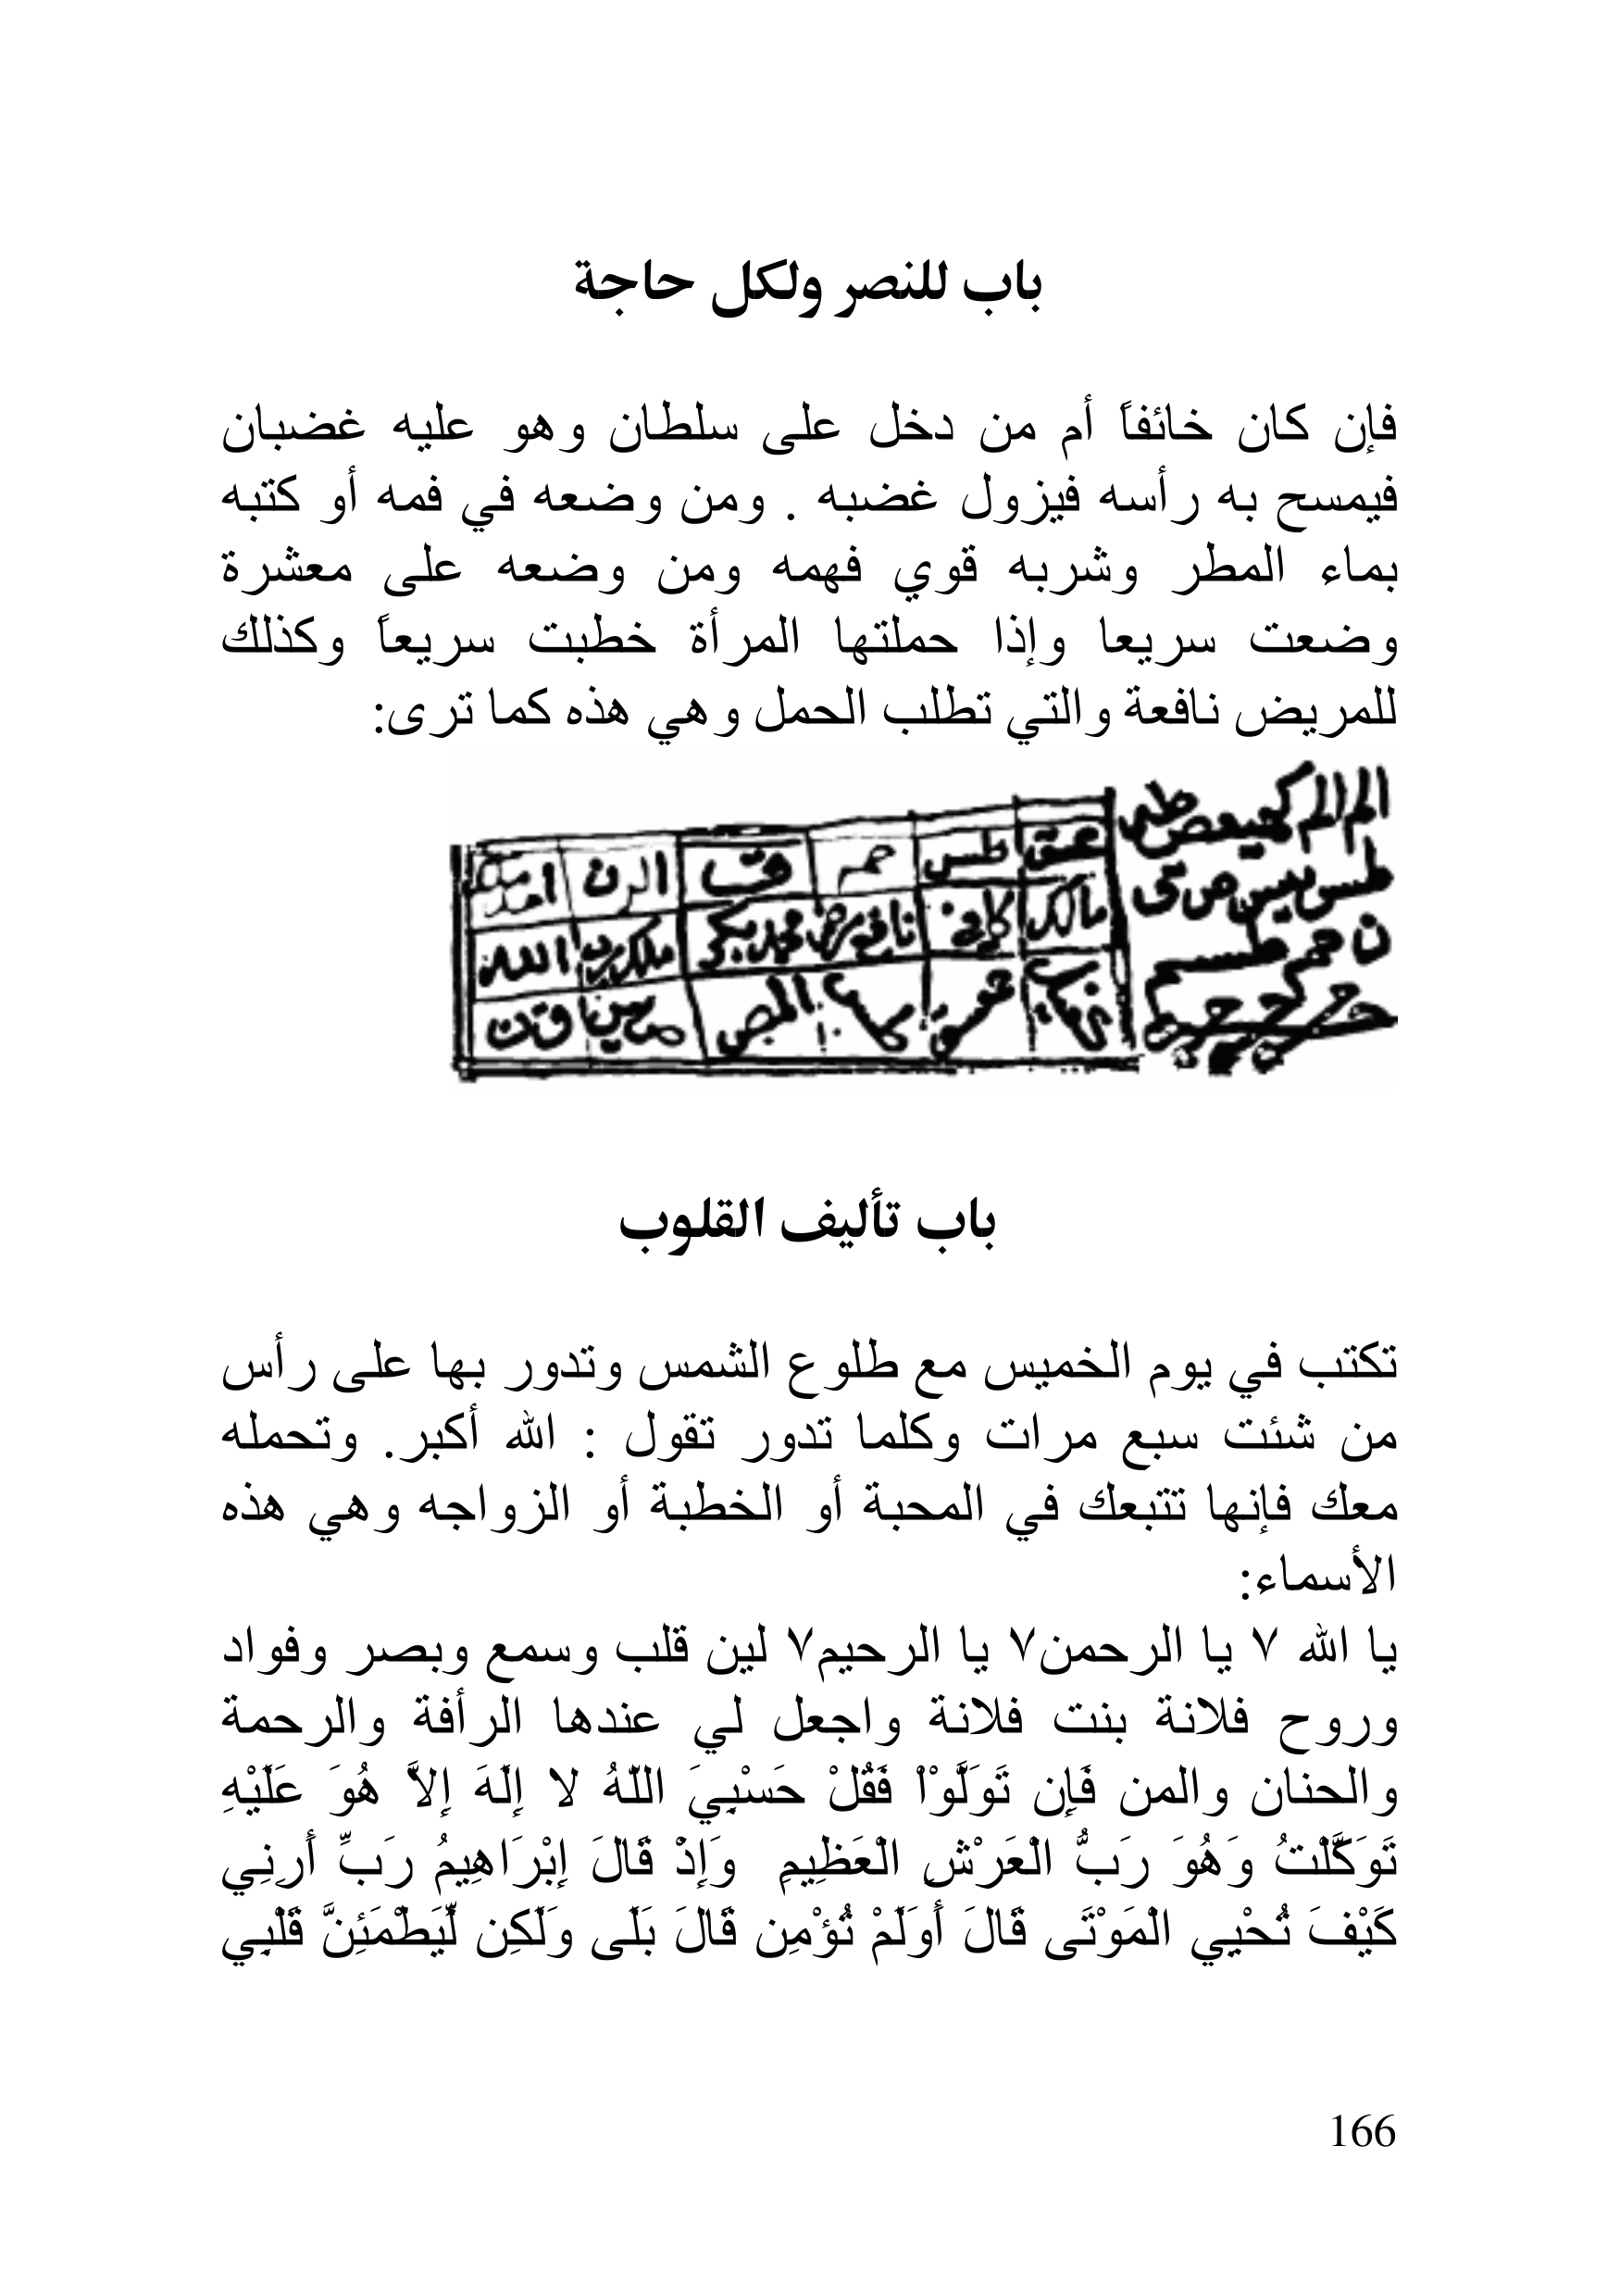 باب للنصر ولكل حاجة
فإن كان خائفاً أم من دخل على سلطان وهو عليه غضبان
فيمسح به رأسه فيزول غضبه . ومن وضعه في فمه أو كتبه
بماء المطر وشربه قوي فهمه ومن وضعه على معشرة
وضعت سريعا وإذا حملتها المرأة خطبت سريعاً وكذلك
للمريض نافعة والتي تطلب الحمل وهي هذه كما ترى:
الم الم كهيعص طه
طس يس ص ق
ن حم طسم
طس حم ق الرن
مالك كافي نافع محمد الله
المص
باب تأليف القلوب
تكتب في يوم الخميس مع طلوع الشمس وتدور بها على رأس
من شئت سبع مرات وكلما تدور تقول : الله أكبر. وتحمله
معك فإنها تتبعك في المحبة أو الخطبة أو الزواجه وهي هذه
الأسماء:
يا الله ٧ يا الرحمن٧ يا الرحيم٧ لين قلب وسمع وبصر وفواد
وروح فلانة بنت فلانة واجعل لي عندها الرأفة والرحمة
والحنان والمن فَإِن تَوَلَّوْاْ فَقُلْ حَسْبِيَ اللّهُ لا إِلَهَ إِلاَّ هُوَ عَلَيْهِ
تَوَكَّلْتُ وَهُوَ رَبُّ الْعَرْشِ الْعَظِيمِ وَإِذْ قَالَ إِبْرَاهِيمُ رَبِّ أَرِنِي
كَيْفَ تُحْيِي الْمَوْتَى قَالَ أَوَلَمْ تُؤْمِن قَالَ بَلَى وَلَكِن لِّيَطْمَئِنَّ قَلْبِي
166